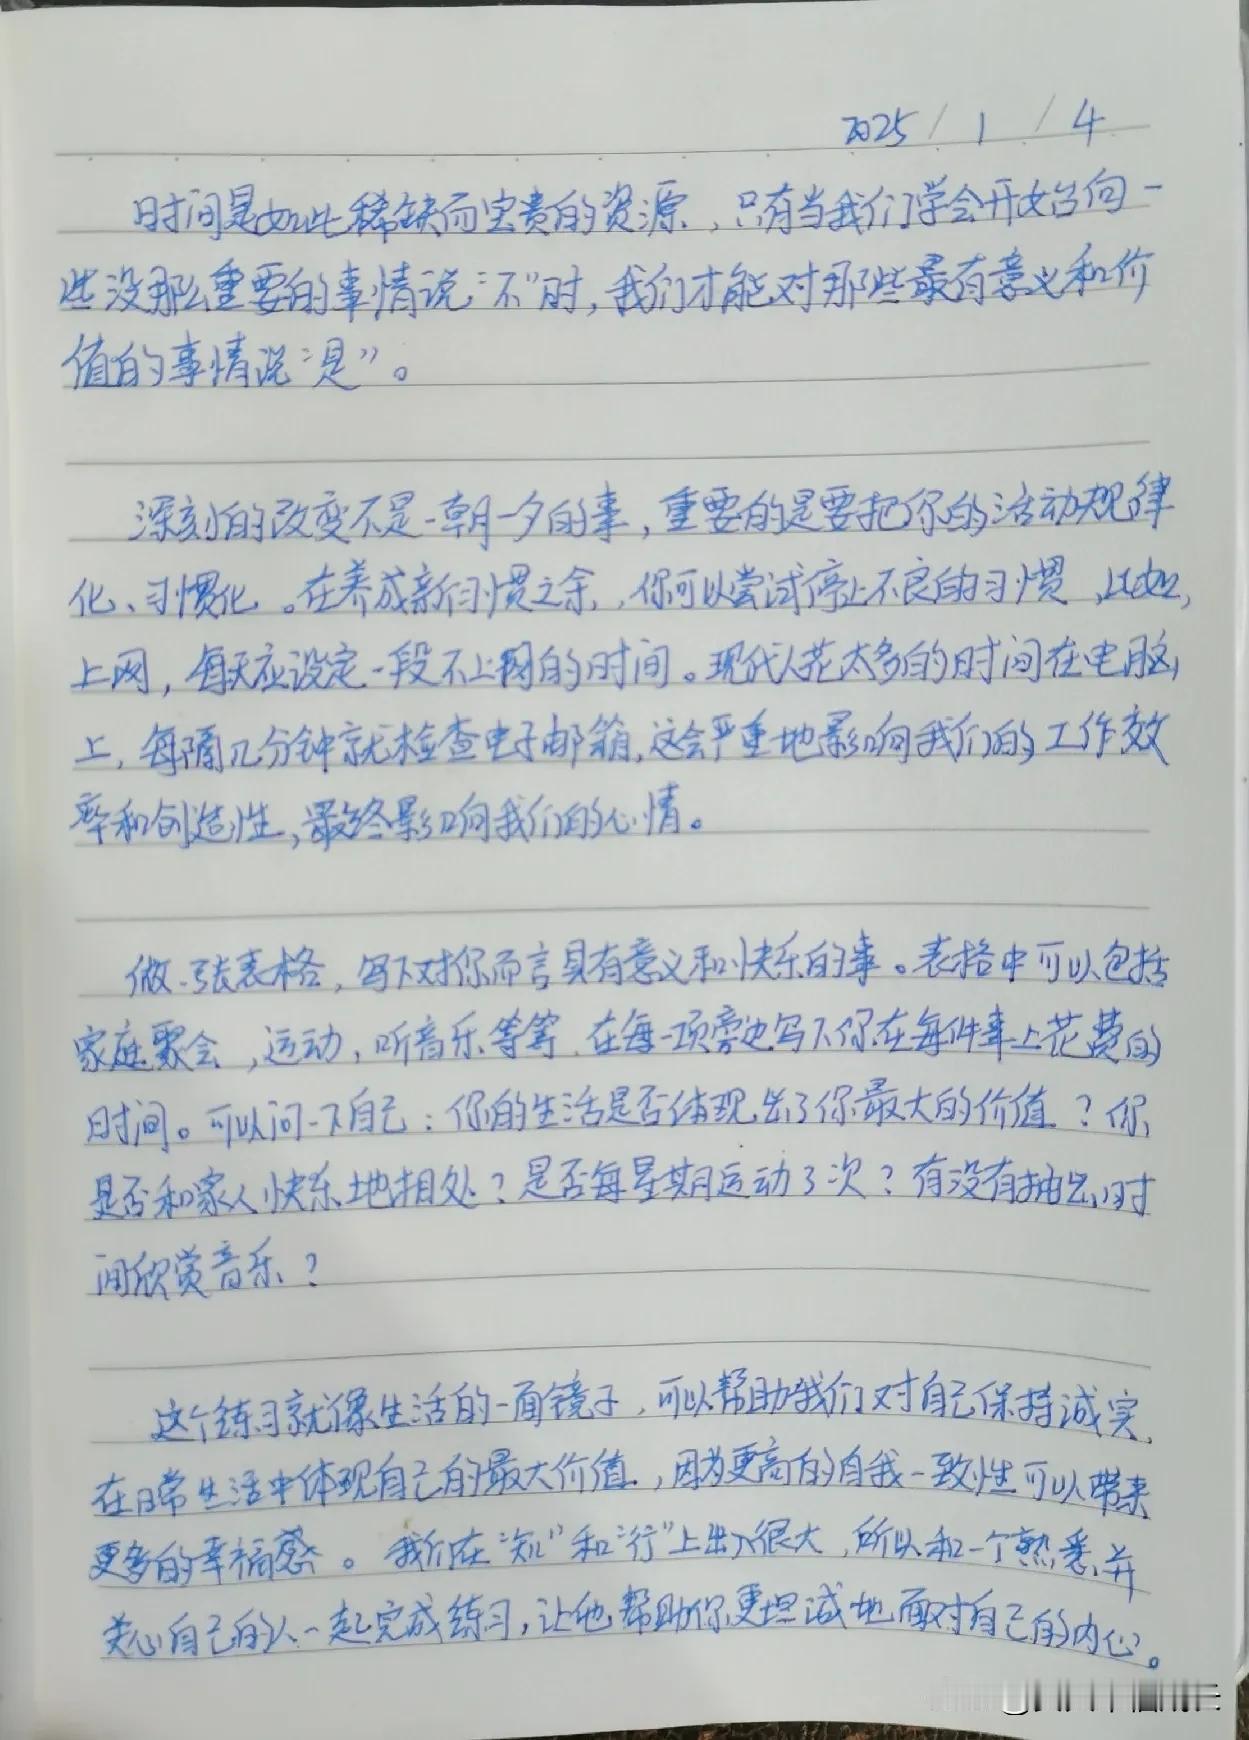 2025/1/4
时间是如此稀缺而宝贵的资源，只有当我们学会开始向一
些没那么重要的事情说“不”时，我们才能对那些最有意义和价
值的事情说“是”。
深刻的改变不是一朝一夕的事，重要的是要把你的活动规律
化、习惯化。在养成新习惯之余，你可以尝试停止不良的习惯，比如，
上网，每天应设定一段不上网的时间。现代人花太多的时间在电脑
上，每隔几分钟就检查电子邮箱，这会严重地影响我们的工作效
率和创造性，最终影响我们的心情。
做一张表格，写下对你而言具有意义和快乐的事。表格中可以包括
家庭聚会，运动，听音乐等等，在每一项旁边写下你在每件事上花费的
时间。可以问一下自己：你的生活是否体现出了你最大的价值？你
是否和家人快乐地相处？是否每星期运动3次？有没有抽出时
间欣赏音乐？
这个练习就像生活的一面镜子，可以帮助我们对自己保持诚实，
在日常生活中体现自己的最大价值，因为更高的自我一致性可以带来
更多的幸福感。我们在“知”和“行”上出入很大，所以和一个熟悉并
关心自己的人一起完成练习，让他帮助你更坦诚地面对自己的内心。